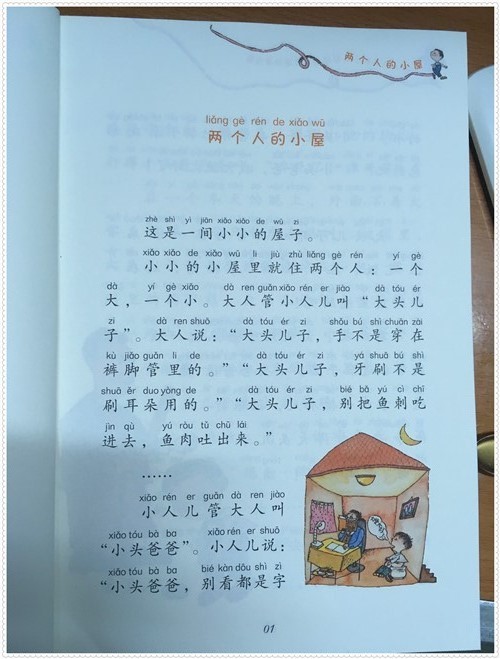 两个人的小屋
liǎng gè rén de xiǎo wū
两个人的小屋
zhè shì yì jiān xiǎo xiǎo de wū zi
这是一间小小的屋子。
xiǎo xiǎo de xiǎo wū li jiù zhù liǎng gè rén yí gè
小小的小屋里就住两个人：一个
dà yí gè xiǎo dà ren guǎn xiǎo rén er jiào dà tóu ér
大，一个小。大人管小人儿叫“大头儿
zi dà ren shuō dà tóu ér zi shǒu bú shì chuān zài
子”。大人说：“大头儿子，手不是穿在
kù jiǎo guǎn li de dà tóu ér zi yá shuā bú shì
裤脚管里的。”“大头儿子，牙刷不是
shuā ěr duo yòng de dà tóu ér zi bié bǎ yú cì chī
刷耳朵用的。”“大头儿子，别把鱼刺吃
jìn qù yú ròu tǔ chū lái
进去，鱼肉吐出来。”
……
xiǎo rén er guǎn dà ren jiào
小人儿管大人叫
xiǎo tóu bà ba xiǎo rén er shuō
“小头爸爸”。小人儿说：
xiǎo tóu bà ba bié kàn dōu shì zì
“小头爸爸，别看都是字
01